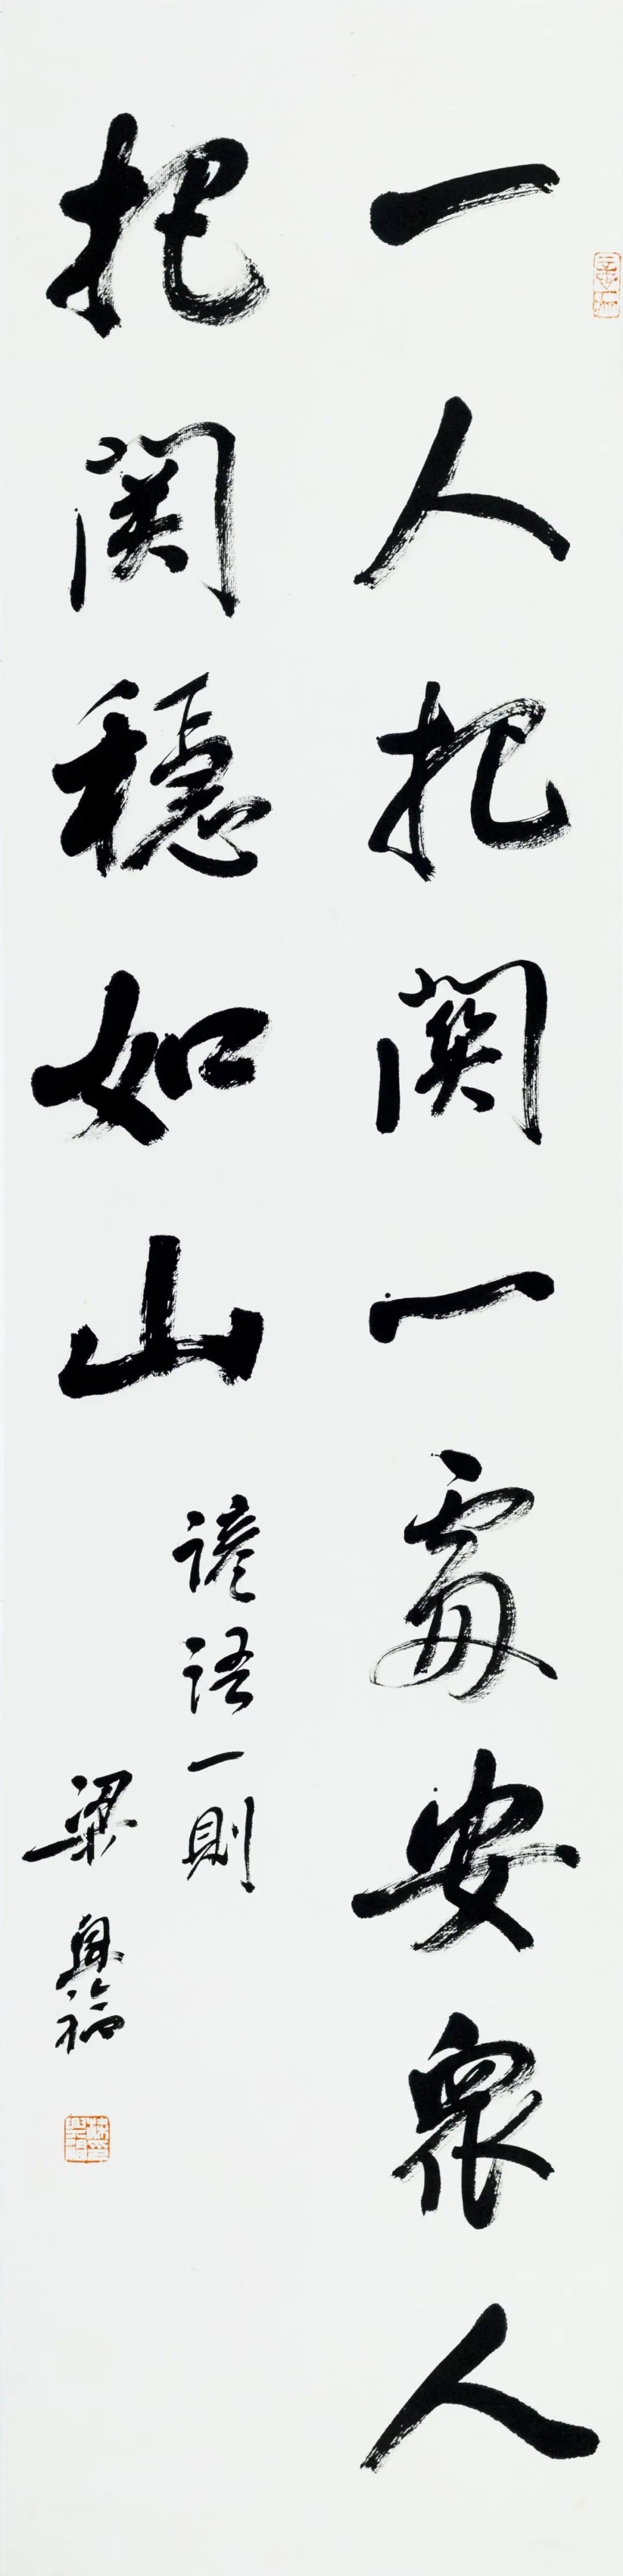 一人把關一處安衆人
把關穩如山
諺語一則
梁興福